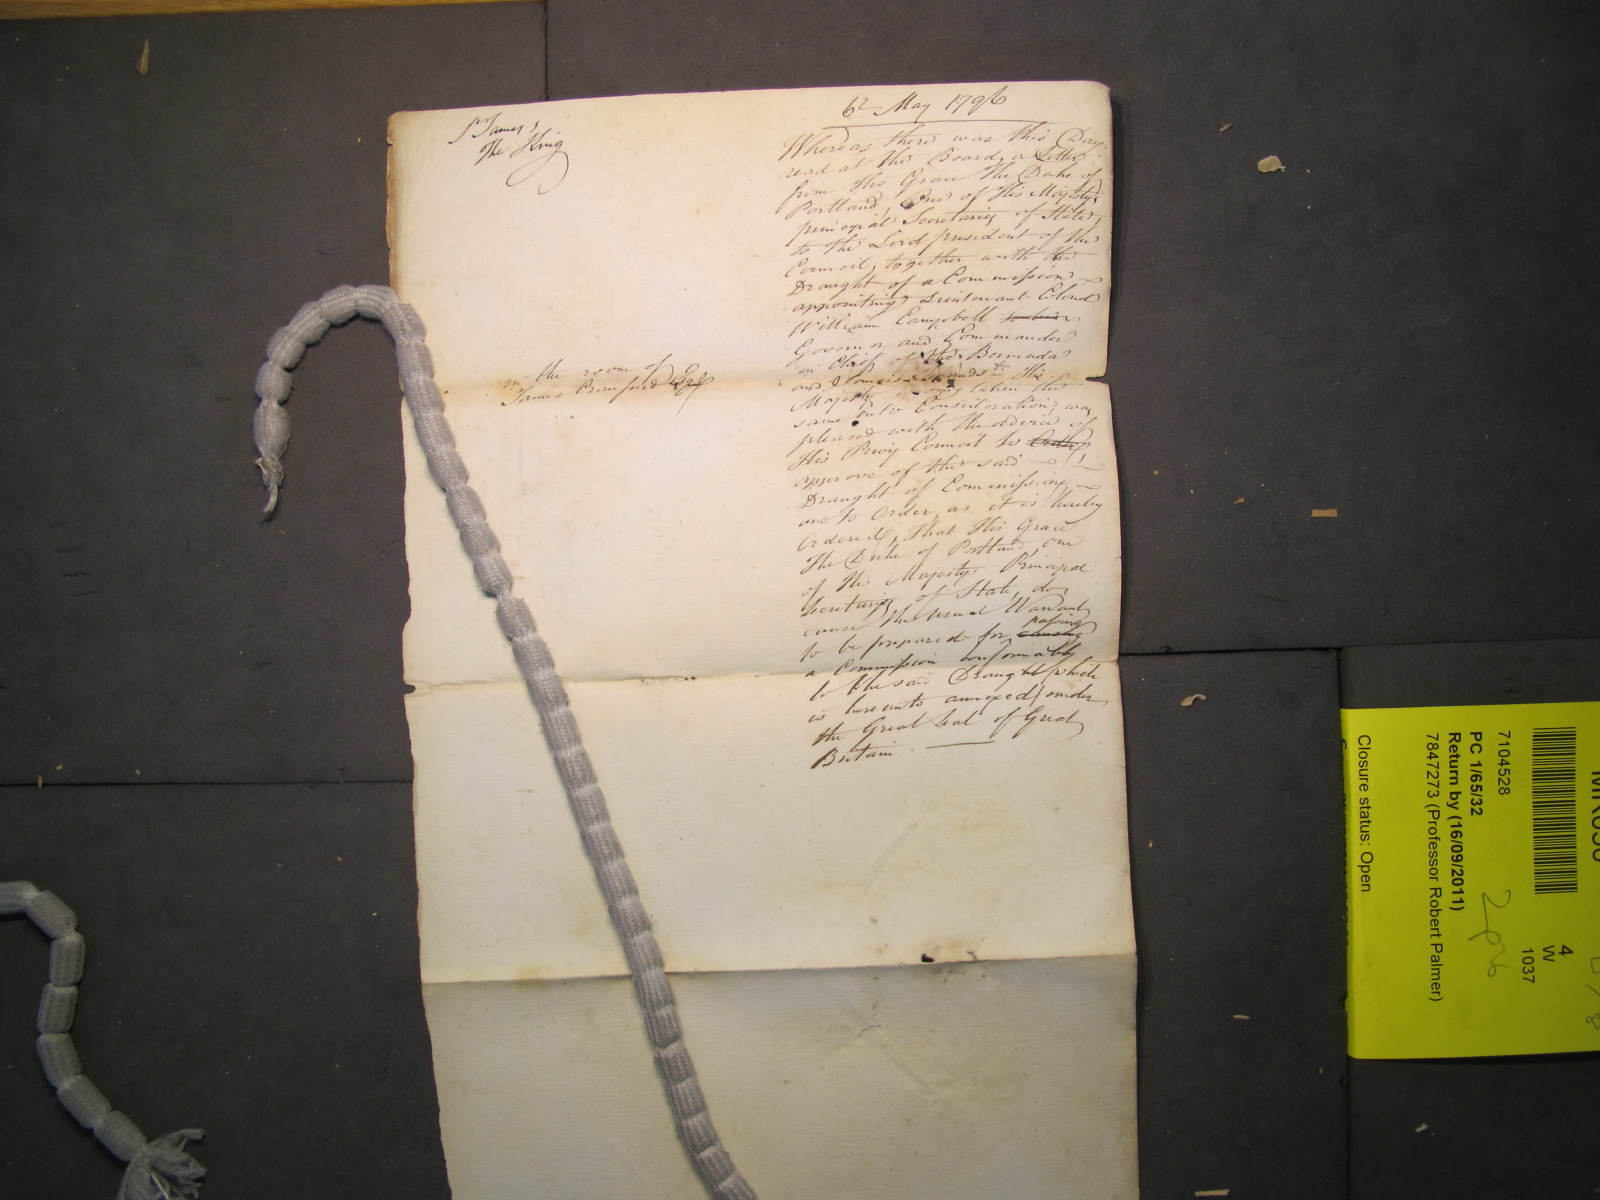 St James's
The King
6th May 1796
Whereas there was this Day
read at the Board, a Letter
from His Grace The Duke of
Portland, One of His Majesty's
principal Secretarys of State,
to the Lord president of the
Council, together with the
Draught of a Commission
appointing Lieutenant Colonel
William Campbell to be
Governor and Commander
in the room of
James Craufurd Esqr
in Chief of the Bermuda
and Somers Islands His
Majesty having taken the
same into Consideration, was
pleased with the advice of
His Privy Council to Order
approve of the said
Draught of Commission,
and to Order, as it is hereby
Ordered, That His Grace
The Duke of Portland, one
of His Majestys Principal
Secretarys of State, do
cause the usual Warrant
passing
to be prepared for causing
a Commission conformably
to the said Draught (which
is hereunto annexed) under
the Great Seal of Great
Britain.
4
W
1037
7104528
PC 1/65/32
Return by (16/09/2011)
7847273 (Professor Robert Palmer)
Closure status: Open